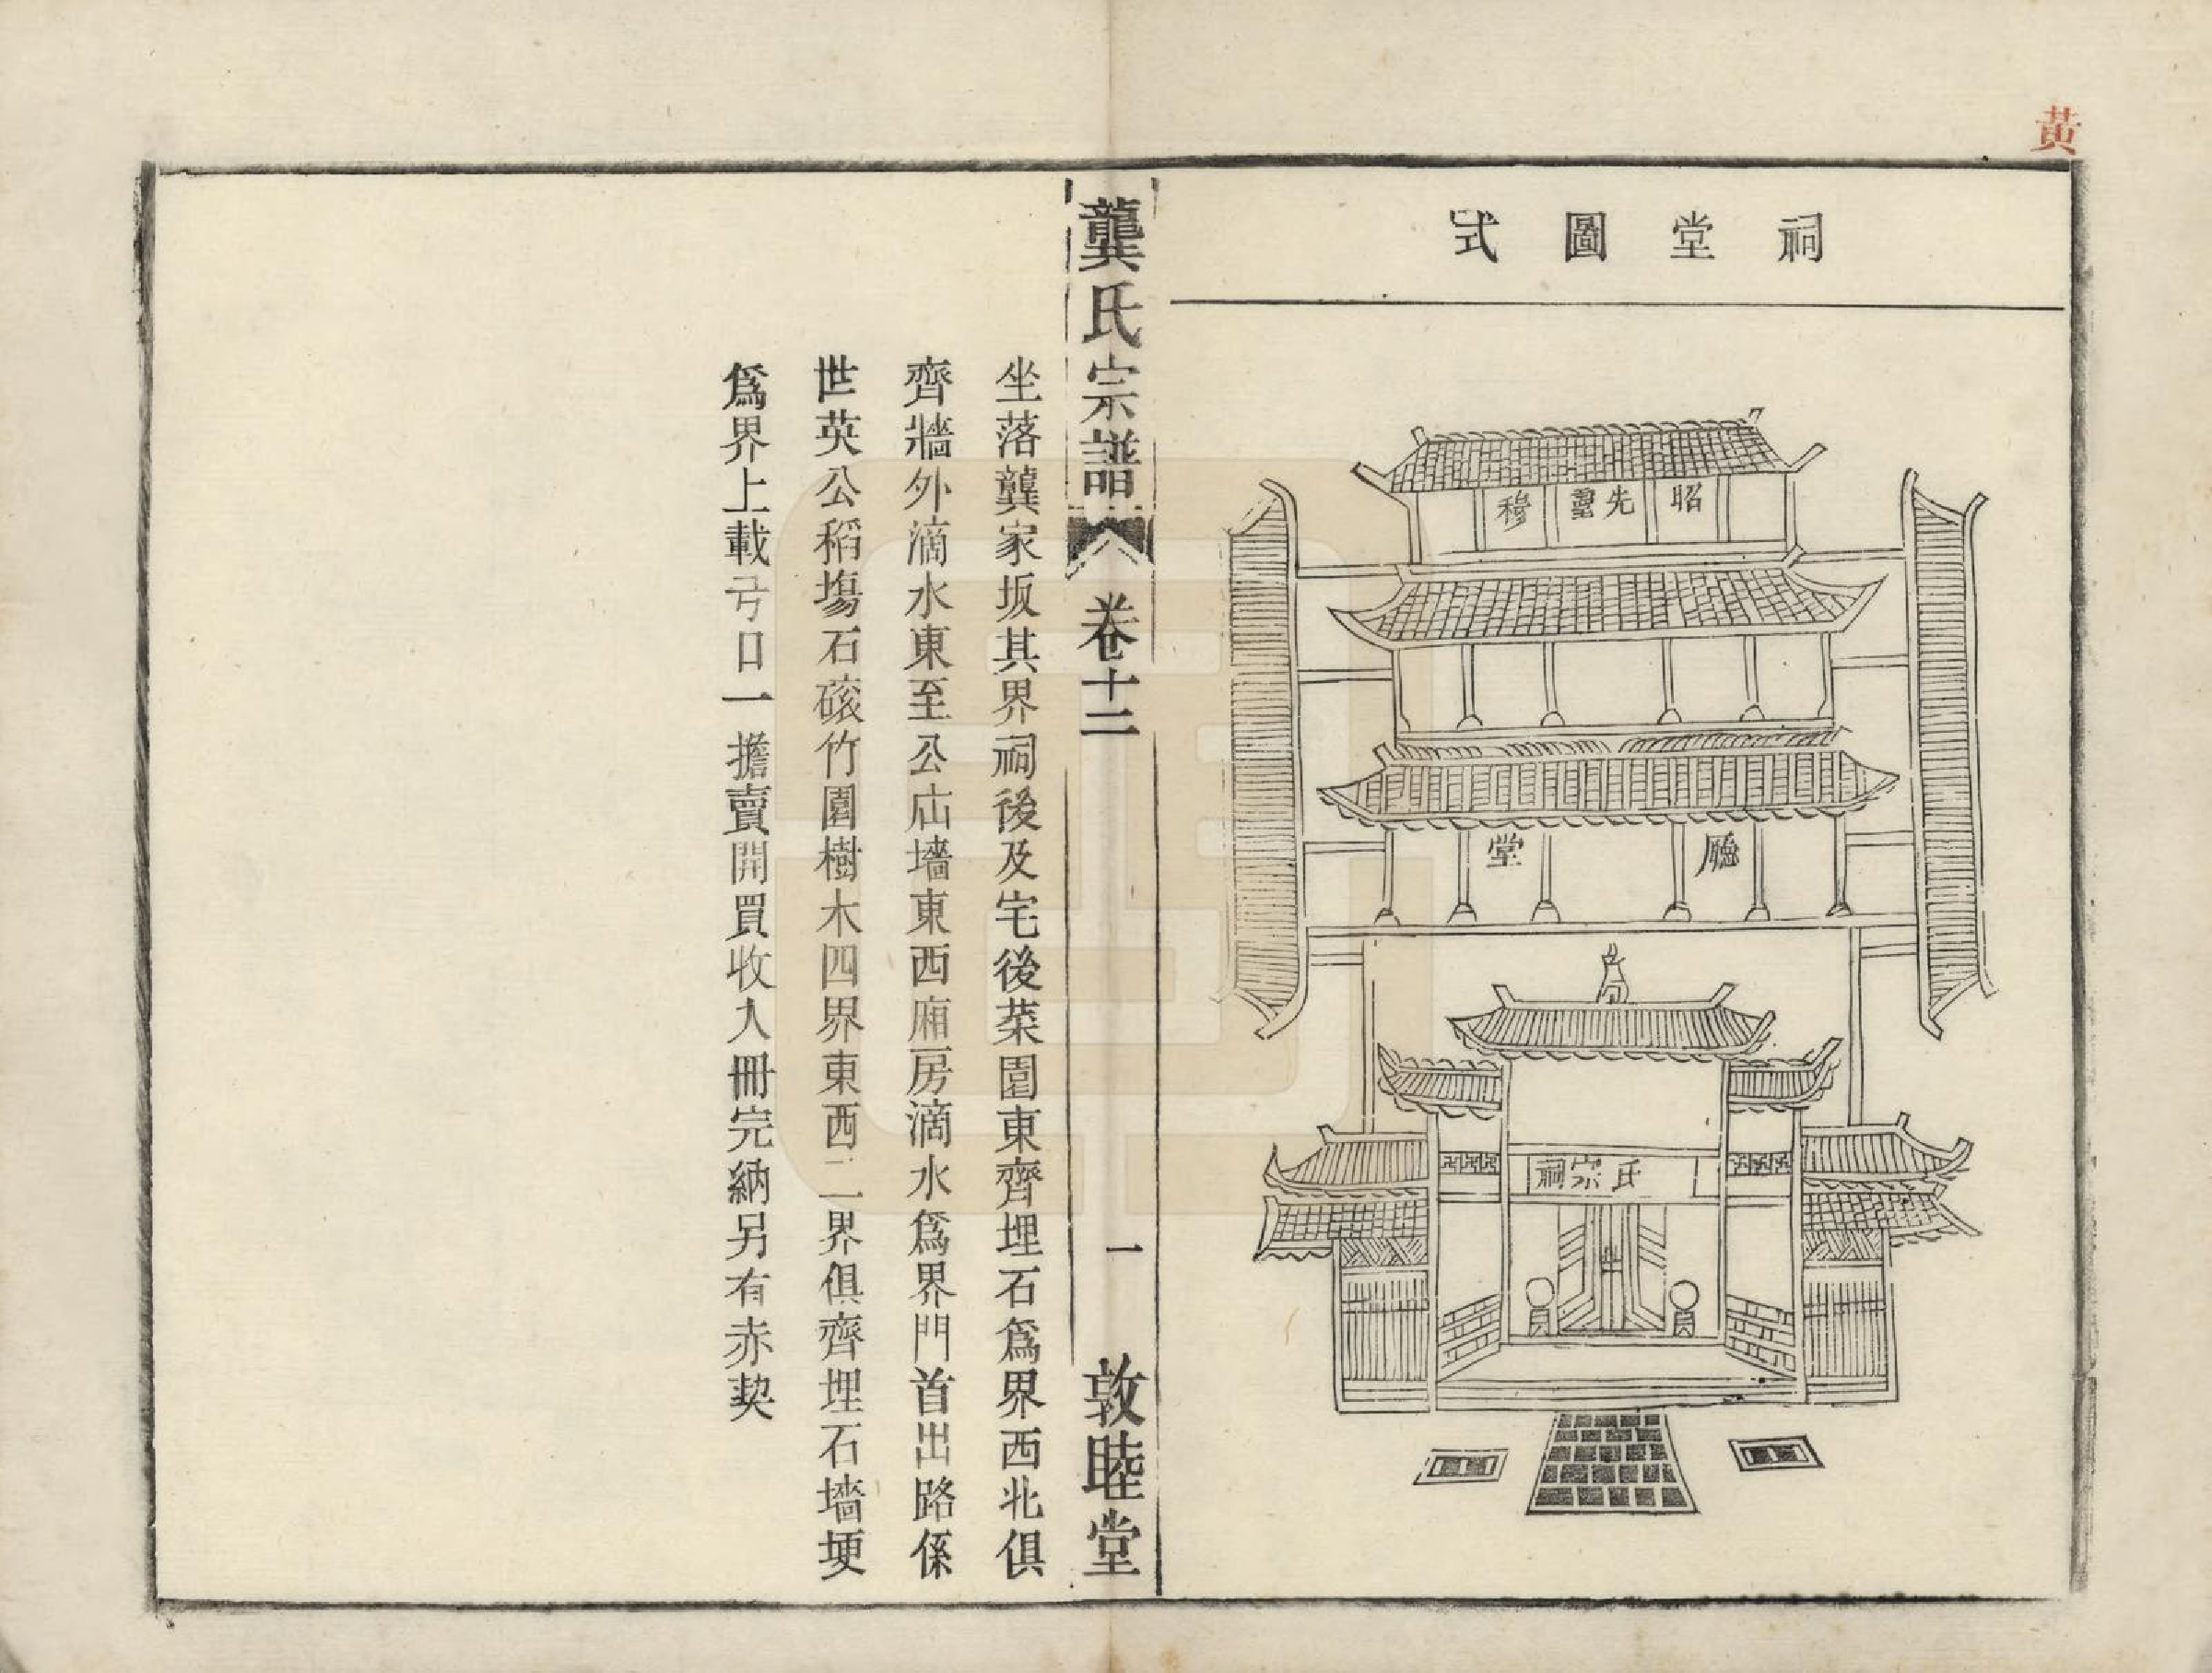 黃
祠堂圖式
昭 先靈 穆
廳堂
氏宗祠
龔氏宗譜 卷十二 一 敦睦堂
坐落龔家坂其界祠後及宅後菜園東齊埋石爲界西北俱
齊牆外滴水東至公庙墻東西廂房滴水爲界門首出路係
世英公稻塲石磙竹園樹木四界東西二界俱齊埋石墻埂
爲界上載弓口一擔賣開買收人冊完納另有赤契